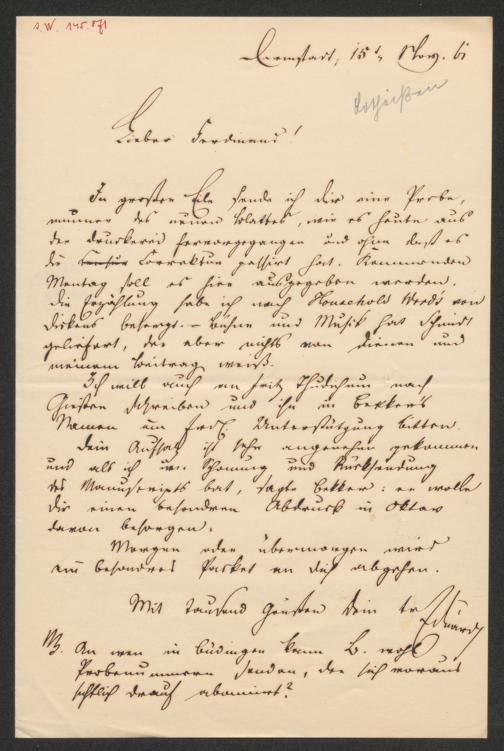 Darmstadt, 15t. Nov. 61
Lotheißen
Lieber Ferdinand!
In großer Eile sende ich dir eine Probe,
nummer des neuen Blattes, wie es heute aus
der Druckerei hervorgegangen und ohne daß es
die Correktur passirt hat. Kommenden
Montag soll es hier ausgegeben werden.
Die Erzählung habe ich nach Household Words von
Dickens besorgt. – Bühne und Musik hat Schmidt
geliefert, der aber nichts von Deinem und
meinem Beitrag weiß.
Ich will auch an Fritz Thudichum nach
Gießen schreiben und ihn in Bekker's
Namen um Unterstützung bitten.
Dein Aufsatz ist sehr angenehm gekommen
und als ich um Schonung und Rücksendung
des Manuscripts bat, sagte Bekker: er wolle
dir einen besondren Abdruck in Oktav
davon besorgen.
Morgen oder übermorgen wird
ein besondres Packet an dich abgehen.
Mit tausend Grüßen dein tr
Eduard
NB. An wen in Büdingen kann B. wohl
Probenummern senden, der sich voraus
sichtlich drauf abonnirt?